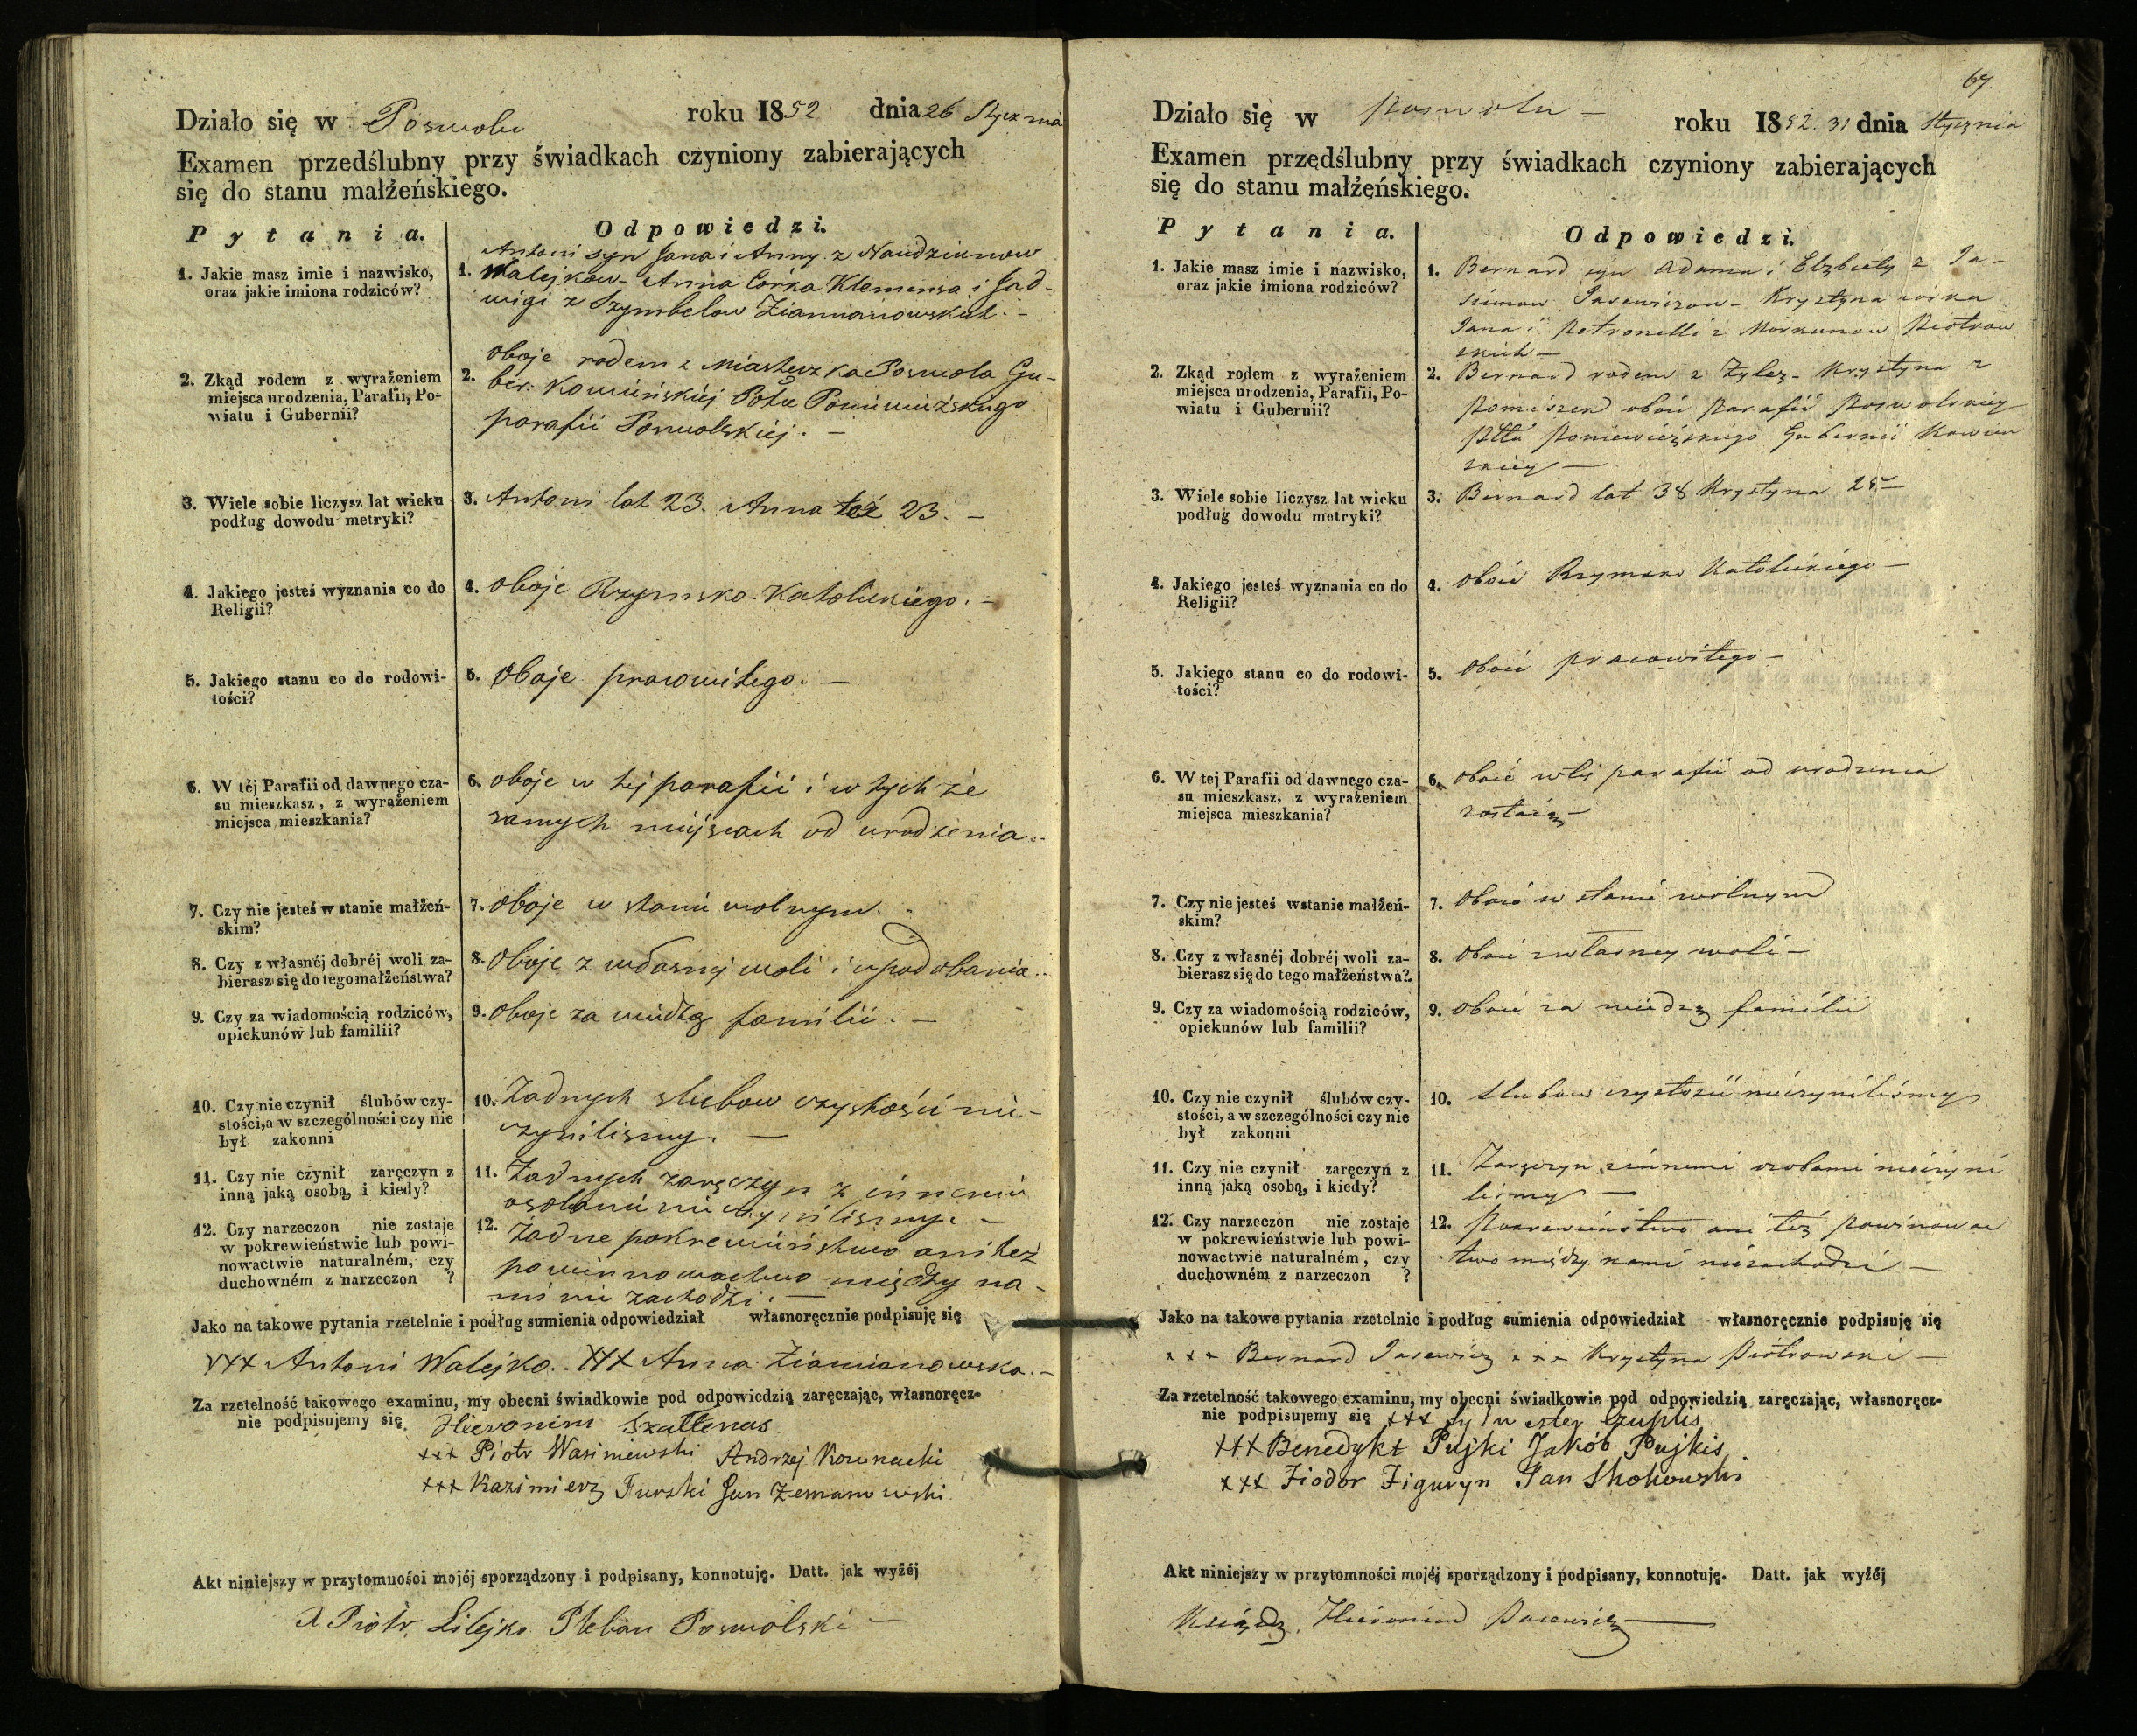 Działo się w Poswolu roku 1852 dnia 26 Stycznia
Examen przedślubny przy świadkach czyniony zabierających
się do stanu małżeńskiego.
Pytania.
Odpowiedzi.
1. Jakie masz imie i nazwisko,
oraz jakie imiona rodziców?
Antoni syn Jana i Anny z Naudziunow
1. Walejkow - Anna Córka Klemensa i Jad-
wigi z Szymbelow Ziamianowskich. -
2. Zkąd rodem z wyrażeniem
miejsca urodzenia, Parafii, Po-
wiatu i Gubernii?
Oboje rodem z Miasteczka Poswola Gu-
2. ber: Kowieńskiéj Pottu Poniewiżskiego
parafii Poswolskiéj. -
3. Wiele sobie liczysz lat wieku
podług dowodu metryki?
3. Antoni lat 23. Anna też 23. -
4. Jakiego jesteś wyznania co do
Religii?
4. Oboje Rzymsko-Katolickiego. -
5. Jakiego stanu co do rodowi-
tości?
5. Oboje prawowitego. -
6. W téj Parafii od dawnego cza-
su mieszkasz, z wyrażeniem
miejsca mieszkania?
6. oboje w tej parafii i w tych że
samych miejscach od urodzenia. -
7. Czy nie jesteś w stanie małżeń-
skim?
7. Oboje w stanie wolnym. -
8. Czy z własnéj dobréj woli za-
bierasz się do tego małżeństwa?
8. Oboje z własnej woli i upodobania. -
9. Czy za wiadomością rodziców,
opiekunów lub familii?
9. Oboje za wiedzą familii. -
10. Czy nie czynił ślubów czy-
stości, a w szczególności czy nie
był zakonni
10. Żadnych slubow czystości nie-
czynilismy. -
11. Czy nie czynił zaręczyn z
inną jaką osobą, i kiedy?
11. Żadnych zaręczyn z innemi
osobami nie czynilismy. -
12. Czy narzeczon nie zostaje
w pokrewieństwie lub powi-
nowactwie naturalném, czy
duchowném z narzeczon ?
12. Żadne pokrewieństwo ani też
powinnowactwo między na-
mi nie zachodzi. -
Jako na takowe pytania rzetelnie i podług sumienia odpowiedział własnoręcznie podpisuję się
XXX Antoni Walejko. XXX Anna Ziamianowska. -
Za rzetelność takowego examinu, my obecni świadkowie pod odpowiedzią zaręczając, własnoręcz-
nie podpisujemy się Hieronim Szattenas
+++ Piotr Wasiniewski Andrzej Kownacki
+++ Kazimierz Turski Jan Zemanowski
Akt niniejszy w przytomności mojéj sporządzony i podpisany, konnotuję. Datt. jak wyżéj
X Piotr Lilejko Pleban Poswolski -
67.
Działo się w Poswolu - roku 1852. 31 dnia Stycznia
Examen przedślubny przy świadkach czyniony zabierających
się do stanu małżeńskiego.
Pytania.
Odpowiedzi.
1. Jakie masz imie i nazwisko,
oraz jakie imiona rodziców?
1. Bernard syn Adama i Elżbiety z Ja-
siunow Jasewiczow - Krystyna córka
Jana i Petronelli z Morkunow Piotrow
skich -
2. Zkąd rodem z wyrażeniem
miejsca urodzenia, Parafii, Po-
wiatu i Gubernii?
2. Bernard rodem z Zylez - Krystyna z
Pomiszen oboie Parafii Poswolskiey
Pttu Poniewieżskiego Gubernii Kowien
skiey -
3. Wiele sobie liczysz lat wieku
podług dowodu metryki?
3. Bernard lat 38 Krystyna 25 -
4. Jakiego jesteś wyznania co do
Religii?
4. Oboie Rzymsko Katolickiego -
5. Jakiego stanu co do rodowi-
tości?
5. Oboie pracowitego -
6. W tej Parafii od dawnego cza-
su mieszkasz, z wyrażeniem
miejsca mieszkania?
6. Oboie w tey parafii od urodzenia
zostaią -
7. Czy nie jesteś wstanie małżeń-
skim?
7. Oboie w stanie wolnym
8. Czy z własnéj dobréj woli za-
bierasz się do tego małżeństwa?
8. Oboie z własney woli -
9. Czy za wiadomością rodziców,
opiekunów lub familii?
9. Oboie za wiedzą familii
10. Czy nie czynił ślubów czy-
stości, a w szczególności czy nie
był zakonni
10. Slubow czystości nieczyniliśmy
11. Czy nie czynił zaręczyn z
inną jaką osobą, i kiedy?
11. Zaręczyn z innemi osobami nieczyni
liśmy -
12. Czy narzeczon nie zostaje
w pokrewieństwie lub powi-
nowactwie naturalném, czy
duchowném z narzeczon ?
12. Pokrewieństwo ani też powinowac
two między nami niezachodzi -
Jako na takowe pytania rzetelnie i podług sumienia odpowiedział własnoręcznie podpisuję się
xxx Bernard Jasewicz xxx Krystyna Piotrowski -
Za rzetelność takowego examinu, my obecni świadkowie pod odpowiedzią zaręczając, własnoręcz-
nie podpisujemy się +++ Sylwester Czuplis
+++ Benedykt Pujki Jakób Pujkis
xxx Fiodor Figuryn Jan Skokowski
Akt niniejszy w przytomności mojéj sporządzony i podpisany, konnotuję. Datt. jak wyżéj
Ksiądz Hieronim